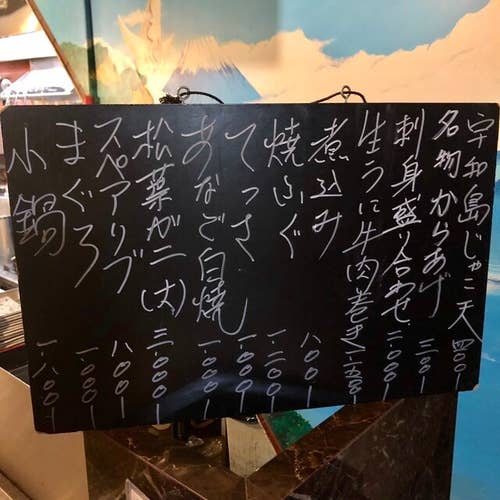 宇和島じゃこ天 四〇〇-
名物からあげ 三〇〇-
刺身盛り合わせ 二.〇〇〇-
生うに牛肉巻き 一.五〇〇-
煮込み 八〇〇-
焼ふぐ 一.二〇〇-
てっさ 一.〇〇〇-
あなご白焼 一.〇〇〇-
松葉がニ(大) 三.〇〇〇-
スペアリブ 八〇〇-
まぐろ 一.〇〇〇-
小鍋 一.八〇〇-